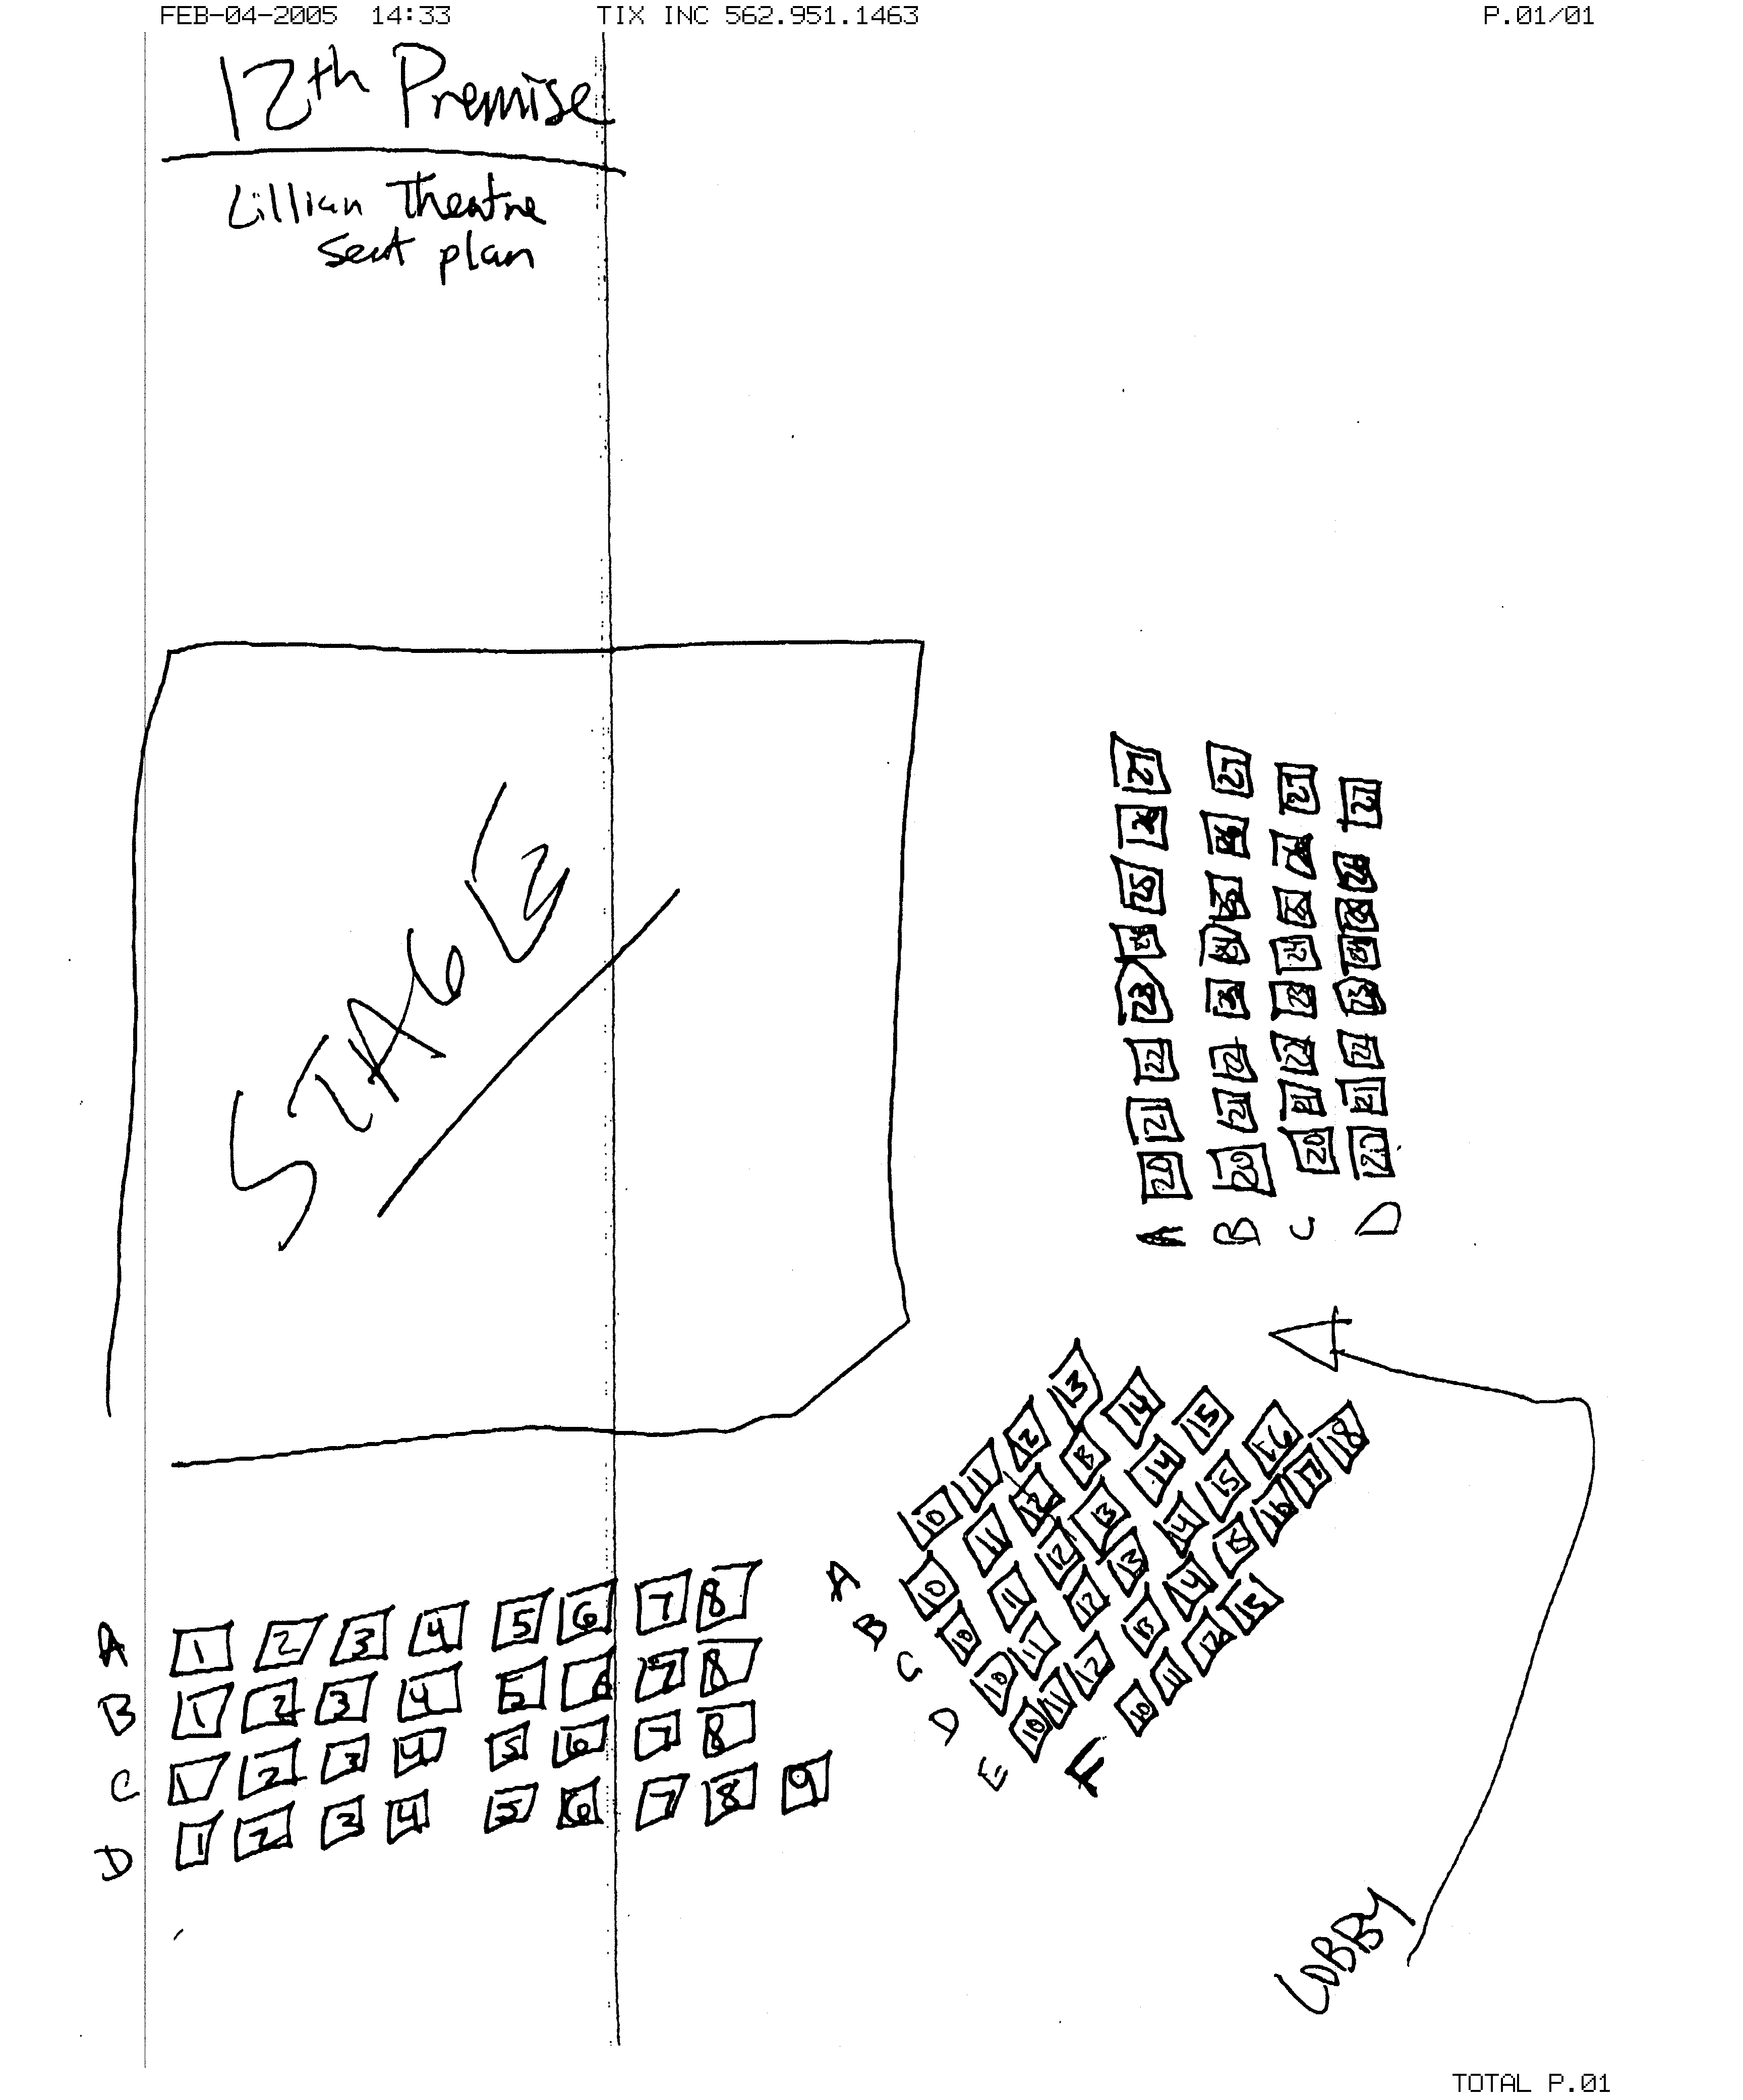 FEB-04-2005 14:33 TIX INC 562.951.1463 P.01/01
12th Premise
Lillian Theatre
seat plan
STAGE
27 27 27 27
26 26 26 26
25 25 25 25
24 24 24 24
23 23 23 23
22 22 22 22
21 21 21 21
20 20 20 20
A B C D
A 10 11 12 13
B 10 11 12 13 14
C 10 11 12 13 14 15
D 10 11 12 13 14 15 16
E 10 11 12 13 14 15 16 17 18
F 10 11 12 15
A 1 2 3 4 5 6 7 8
B 1 2 3 4 5 6 7 8
C 1 2 3 4 5 6 7 8
D 1 2 3 4 5 6 7 8 9
LOBBY
TOTAL P.01